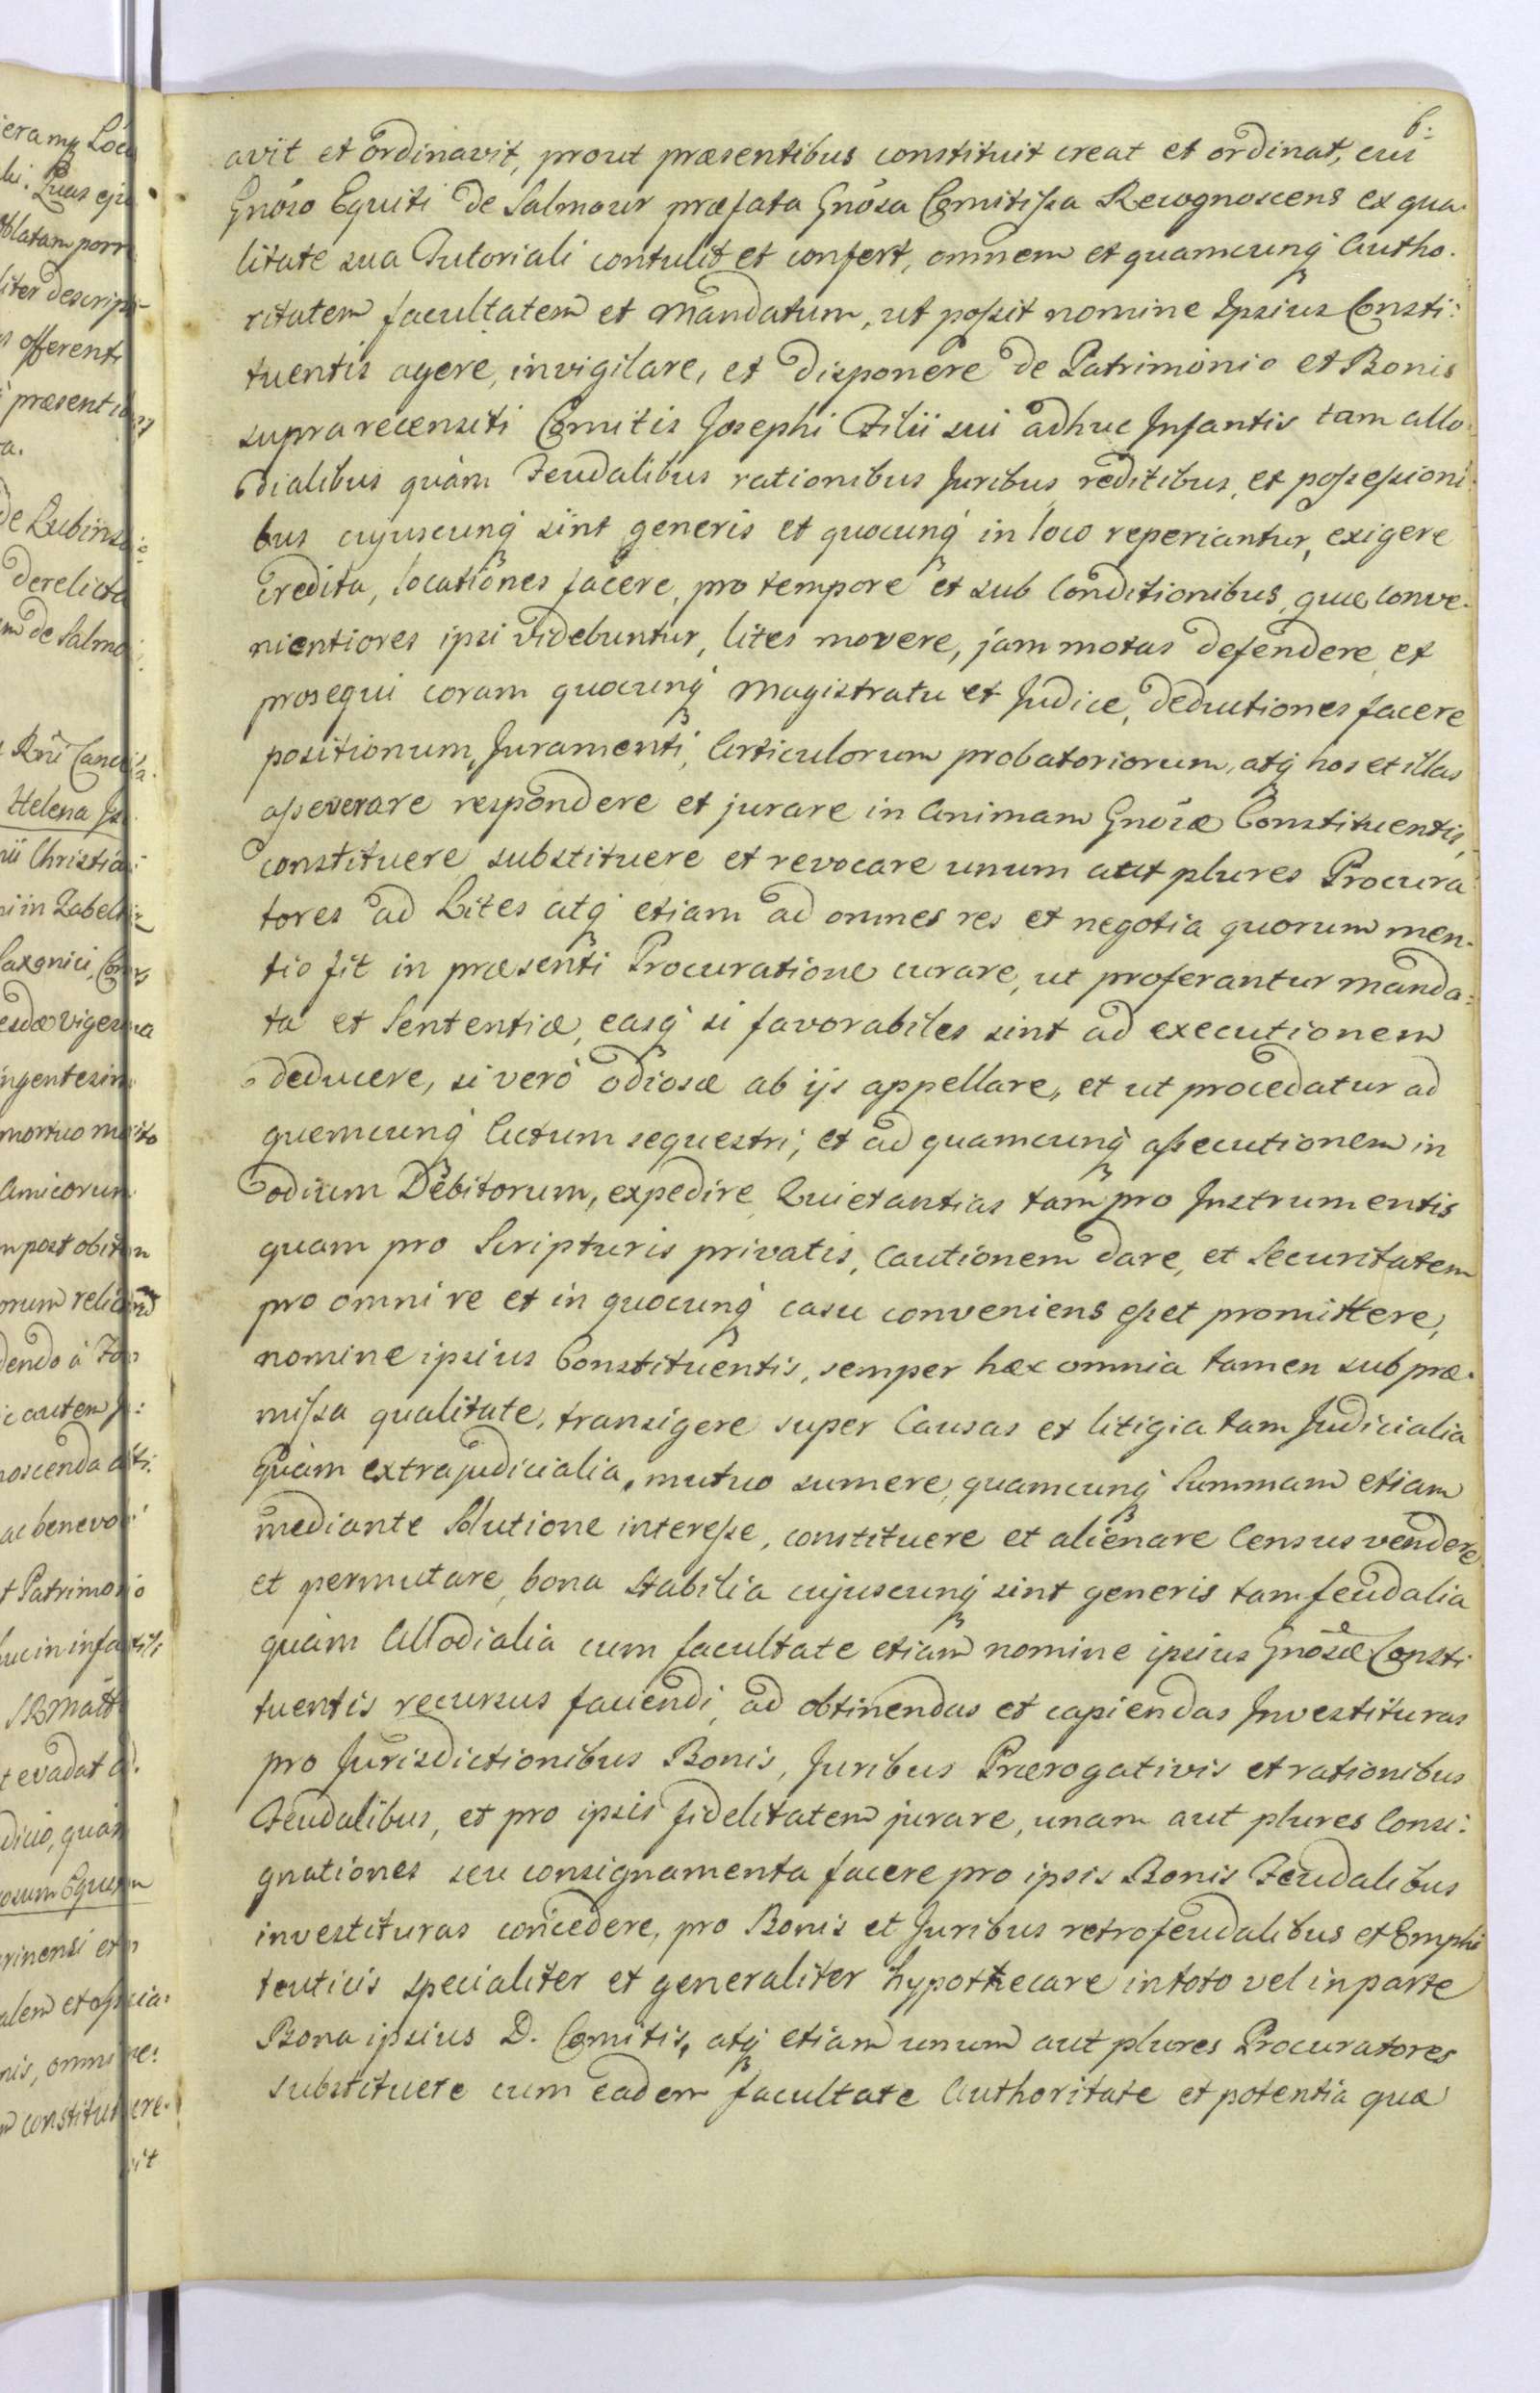 6.
avit et ordinavit, prout præsentibus constituit creat et ordinat, cui
Gnoso Equiti de Salmour præfata Gnosa Comitissa Recognoscens ex qua-
litate sua Tutoriali contulit et confert, omnem et quamcunq Autho-
ritatem facultatem et Mandatum, ut possit nomine Ipsius Consti:
tuentis agere, invigilare, et disponere de Patrimonio et Bonis
supra recensiti Comitis Josephi Filii sui adhuc Infantis tam allo-
dialibus quàm Feudalibus rationibus Juribus reditibus, et possessioni:
bus cujuscunq sint generis et quocunq in loco reperiantur, exigere
credita, locationes facere, pro tempore et sub Conditionibus, quæ Conve-
nientiores ipsi videbuntur, lites movere, jam motas defendere et
prosequi coram quocunq Magistratu et Judice, deductiones facere
positionum, Juramenti, Articulorum probatoriorum, atq has et illas
asseverare respondere et jurare in Animam Gnosæ Constituentis,
constituere substituere et revocare unum aut plures Procura
tores ad Lites atq etiam ad omnes res et negotia quorum men-
tio fit in præsenti Procuratione curare, ut proferantur Manda:
ta et Sententiæ, easq si favorabiles sint ad executionem
deducere, si verò odiosæ ab ijs appellare, et ut procedatur ad
quemcunq Actum sequestri, et ad quamcunq assecutionem in
odium Debitorum, expedire Quietantias tam pro Instrumentis
quam pro Scripturis privatis, Cautionem dare, et Securitatem
pro omni re et in quocunq casu conveniens esset promittere,
nomine ipsius Constituentis, semper hæc omnia tamen sub præ-
missa qualitate, transigere super Causas et litigia tam Judicialia
Quàm extrajudicialia, mutuo sumere, quamcunq Summam etiam
mediante Solutione interesse, constituere et alienare Census vendere
et permutare, bona stabilia cujuscunq sint generis tam feudalia
quàm Allodialia cum facultate etiam nomine ipsius Gnosæ Consti
tuentis recursus faciendi, ad obtinendas et capiendas Investituras
pro Jurisdictionibus Bonis, Juribus Prærogativis et rationibus
Feudalibus, et pro ipsis fidelitatem jurare, unam aut plures Consi:
gnationes seu consignamenta facere pro ipsis Bonis Feudalibus
investituras concedere, pro Bonis et Juribus retrofeudalibus et Emphi
teuticis specialiter et generaliter hypothecare in toto vel in parte
Bona ipsius D. Comitis, atq etiam unum aut plures Procuratores
substituere cum eadem facultate Authoritate et potentia quæ